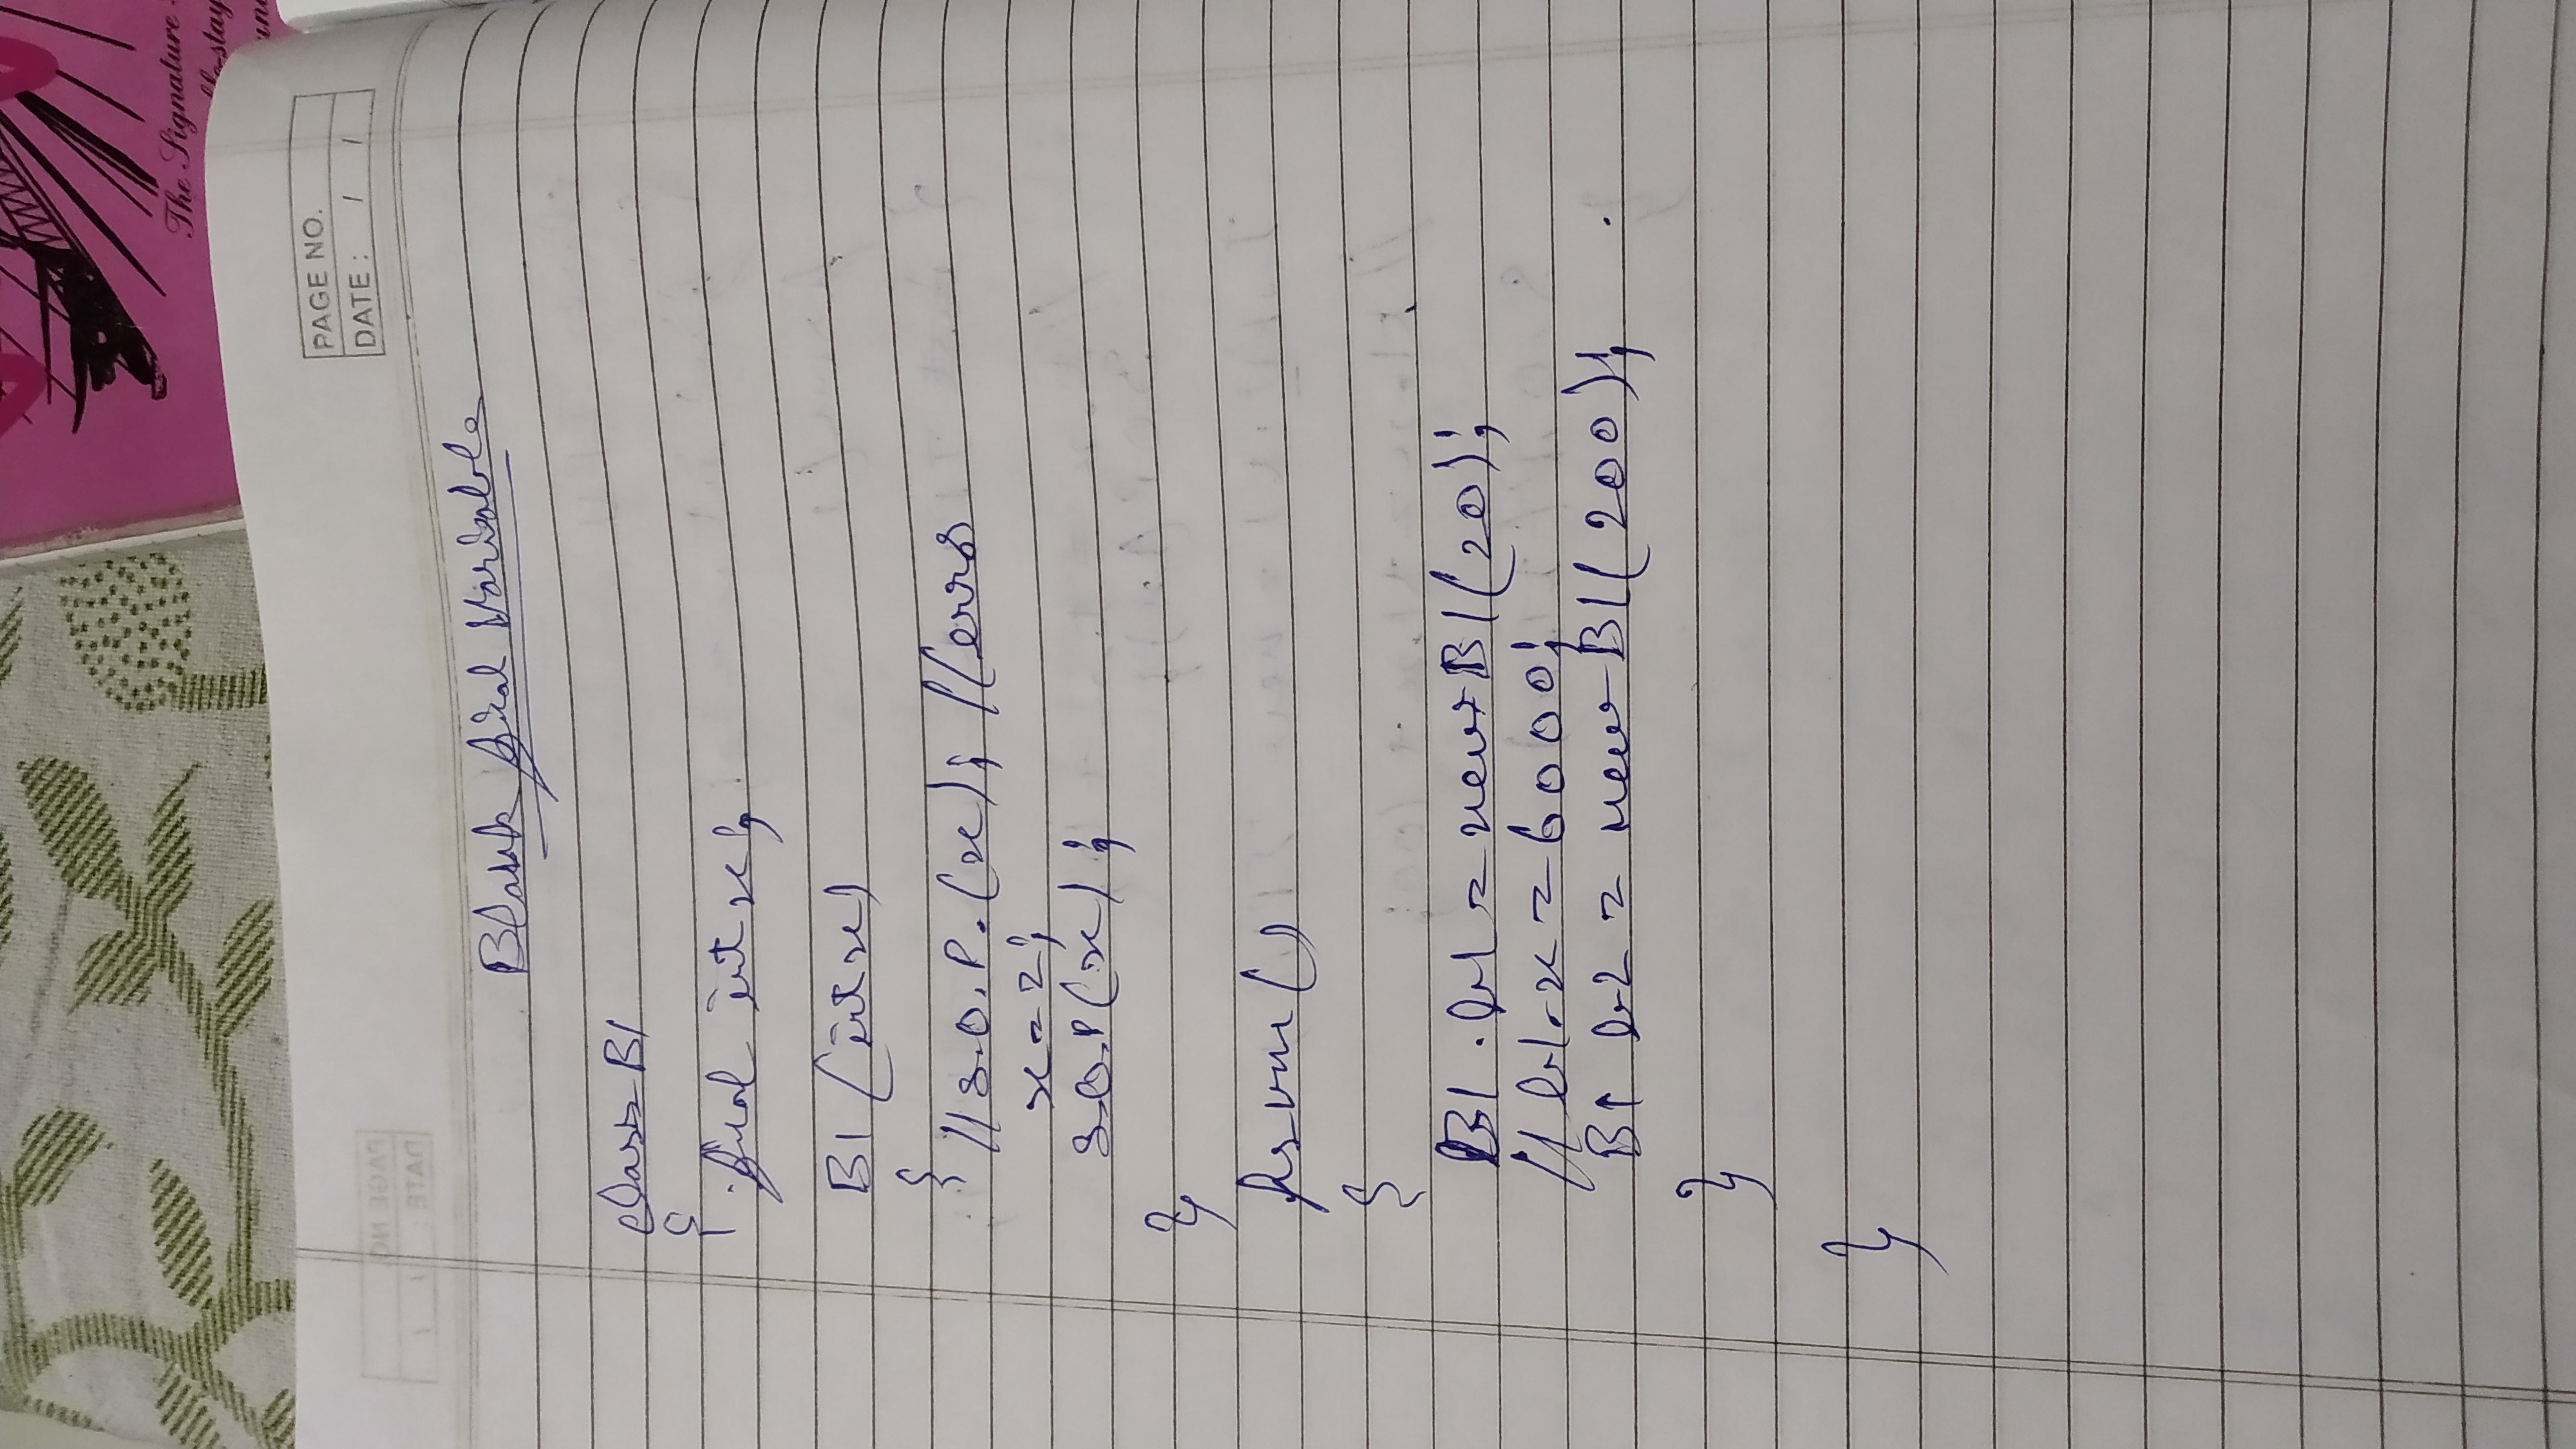 The Signature
PAGE NO.
DATE : / /
Blank final Variable
class B1
{
final int x;
B1 (int x)
{
//S.O.P.(x); //error
x = 2;
S.O.P(x);
}
psvm()
{
B1 b1 = new B1(20);
// b1.x = 6000;
B1 b2 = new B1(200);
}
}